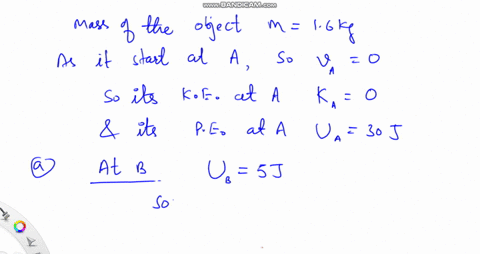 WWW.BANDICAM.COM
Mass of the object m = 1.6 kg
As it start at A, so v_A = 0
So its K.E. at A K_A = 0
& its P.E. at A U_A = 30 J
(a) At B U_B = 5 J
So